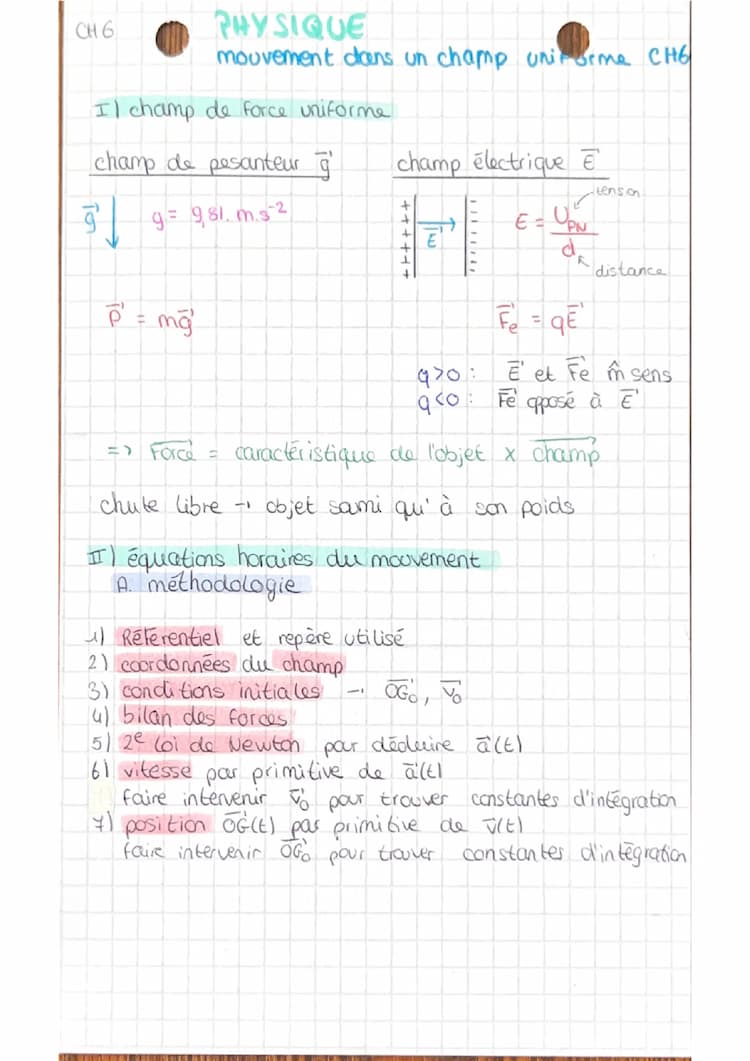 CH6
PHYSIQUE
mouvement dans un champ uniforme CH6
I) champ de force uniforme
champ de pesanteur g⃗
champ électrique E⃗
g⃗
g = 9,81. m.s⁻²
+ + + + + +
E⃗
- - - - - - -
E = U_PN / d
tension
distance
P⃗ = mg⃗
F⃗e = qE⃗
q>0 : E⃗ et F⃗e m̂ sens
q<0 : F⃗e opposé à E⃗
=> Force⃗ = caractéristique de l'objet x champ⃗
chute libre → objet sami qu'à son poids
II) équations horaires du mouvement
A. méthodologie
1) Référentiel et repère utilisé
2) coordonnées du champ
3) conditions initiales → OG₀⃗, v₀⃗
4) bilan des forces
5) 2e loi de Newton pour déduire a⃗(t)
6) vitesse par primitive de a⃗(t)
faire intervenir v₀⃗ pour trouver constantes d'intégration
7) position OG⃗(t) par primitive de v⃗(t)
faire intervenir OG₀⃗ pour trouver constantes d'intégration